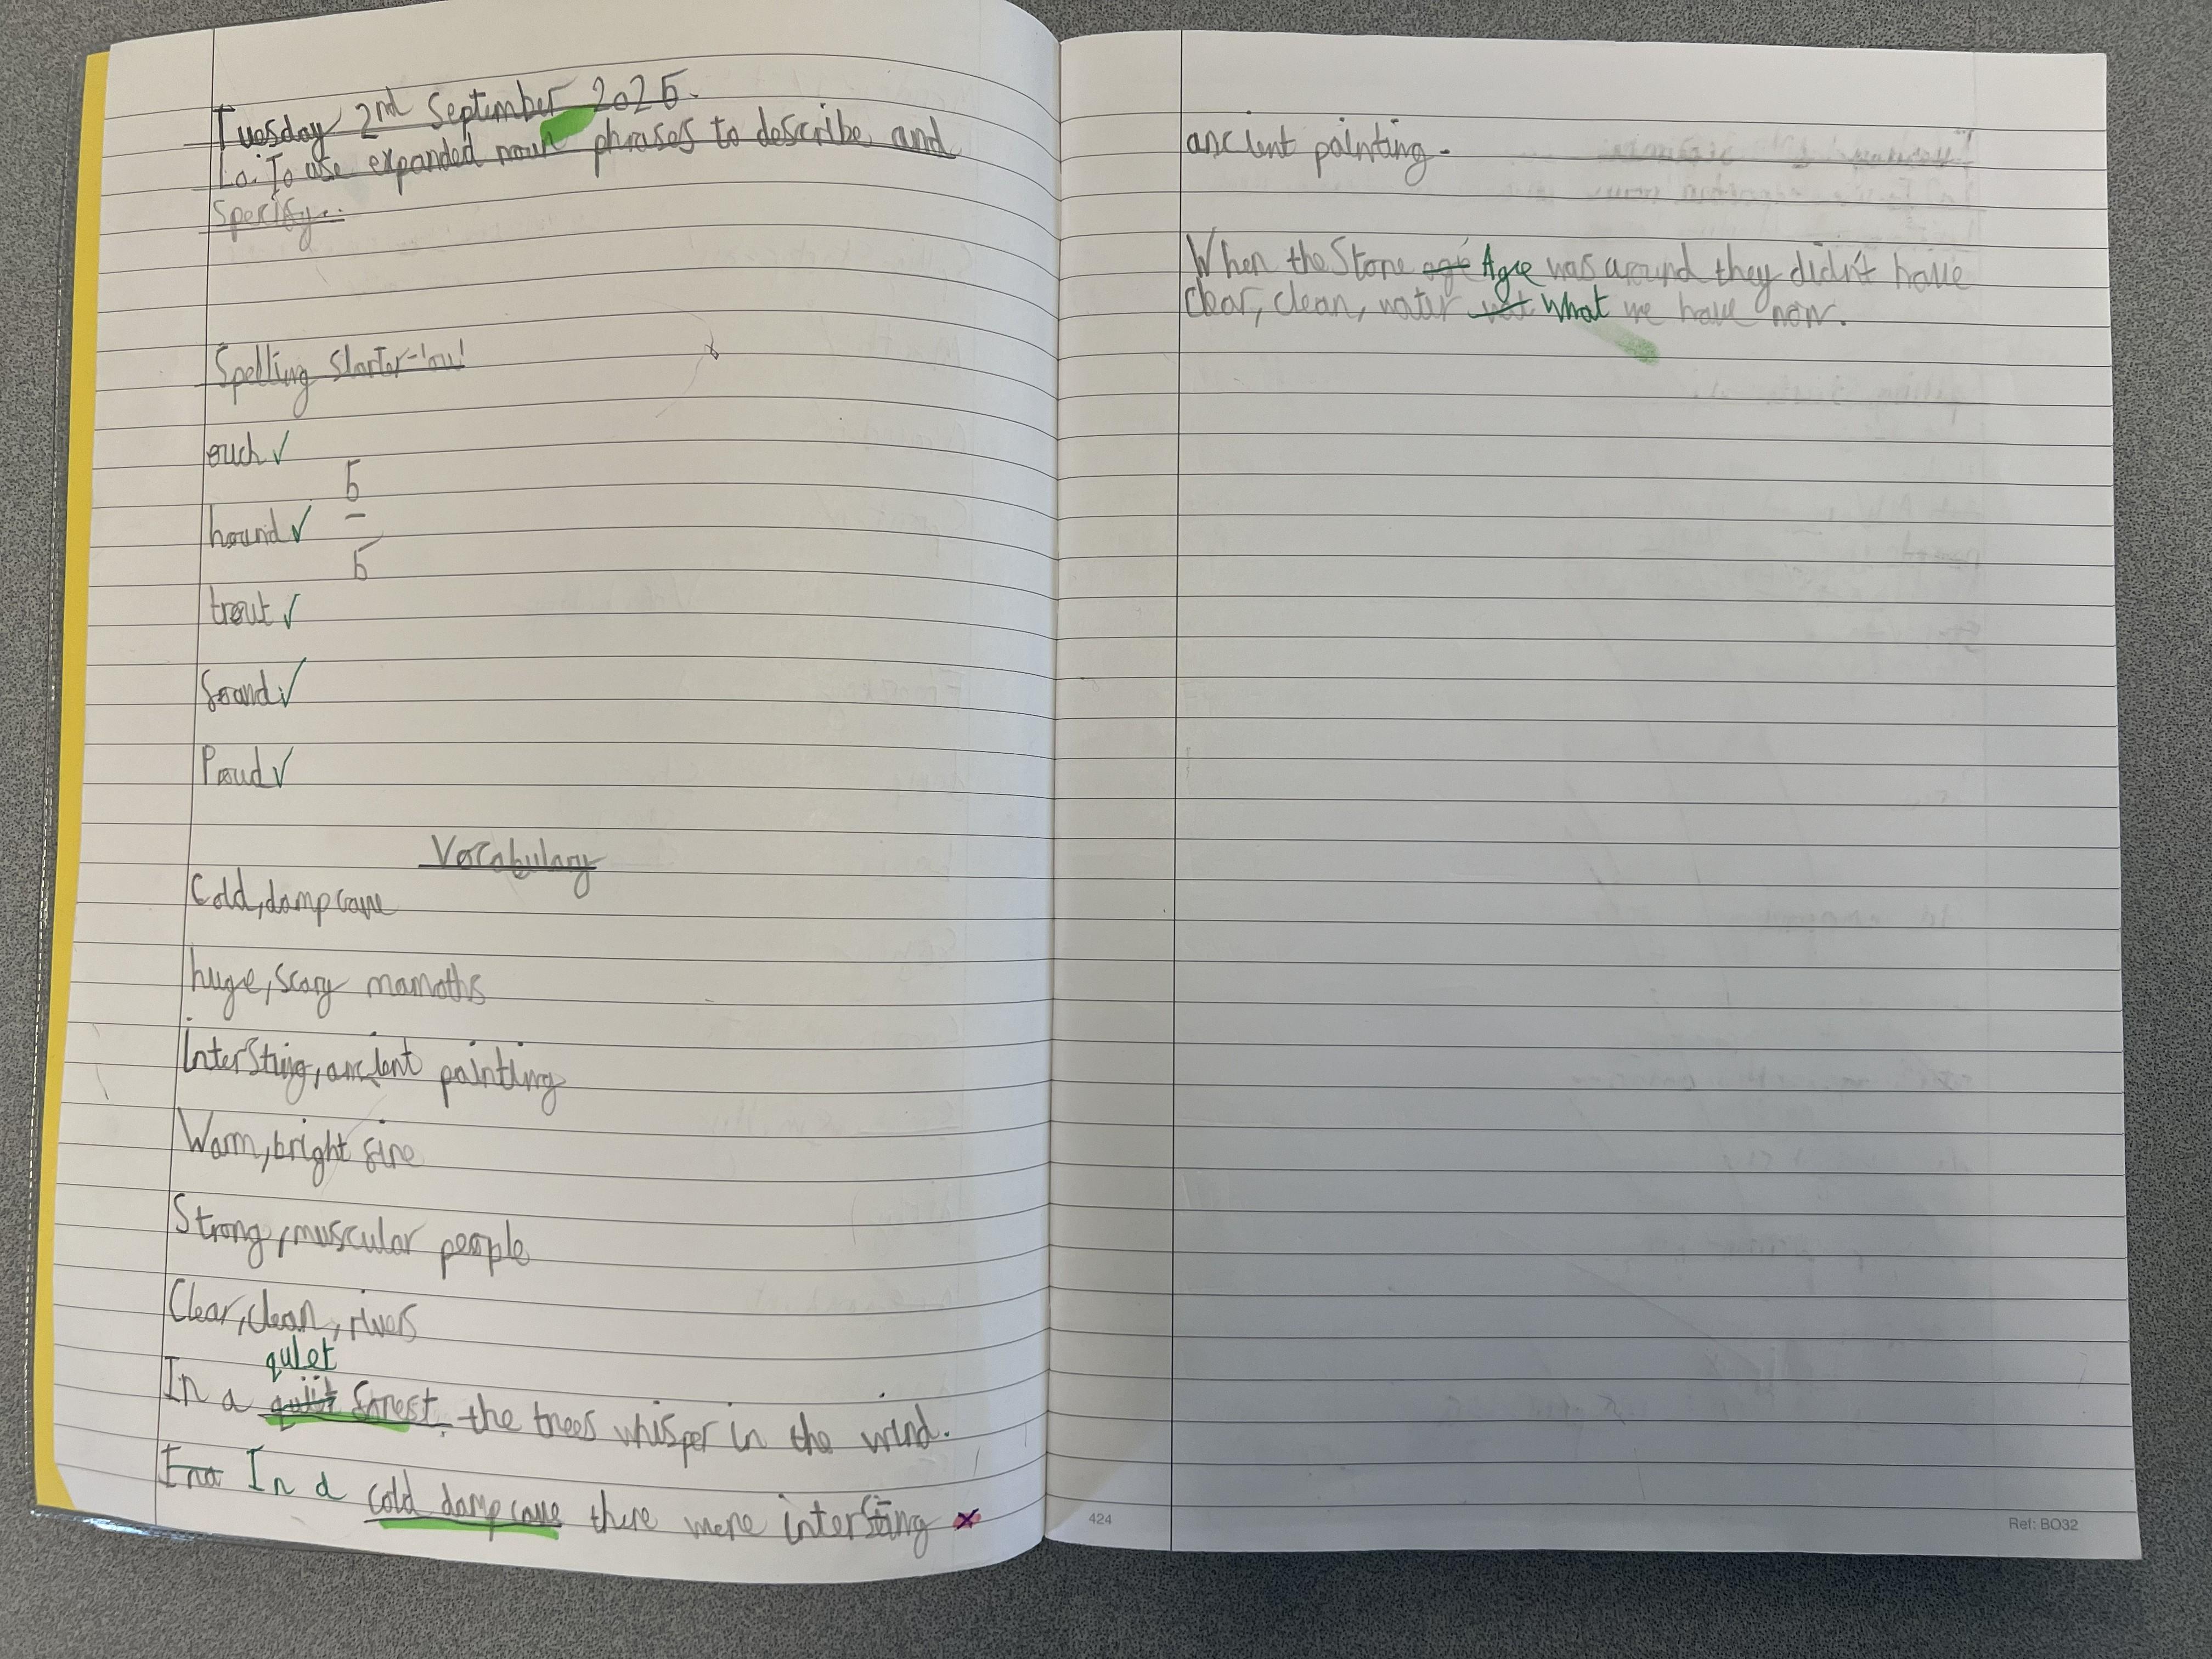 Tuesday 2nd September 2025.
Lo. To use expanded noun phrases to describe and
specify.
Spelling starter-'ou'
ouch ✓
5
hound ✓
5
trout ✓
Sound ✓
Proud ✓
Vocabulary
Cold, damp cave
huge, scary mamoths
InterSting, ancient painting
Warm, bright fire
Strong, muscular people
Clear, clean, rivers
quiet
In a forest, the trees whisper in the wind.
In a cold damp cave there were intersting
ancient painting.
When the Stone age Age was around they didn't have
clear, clean, water what we have now.
424
Ref: BO32